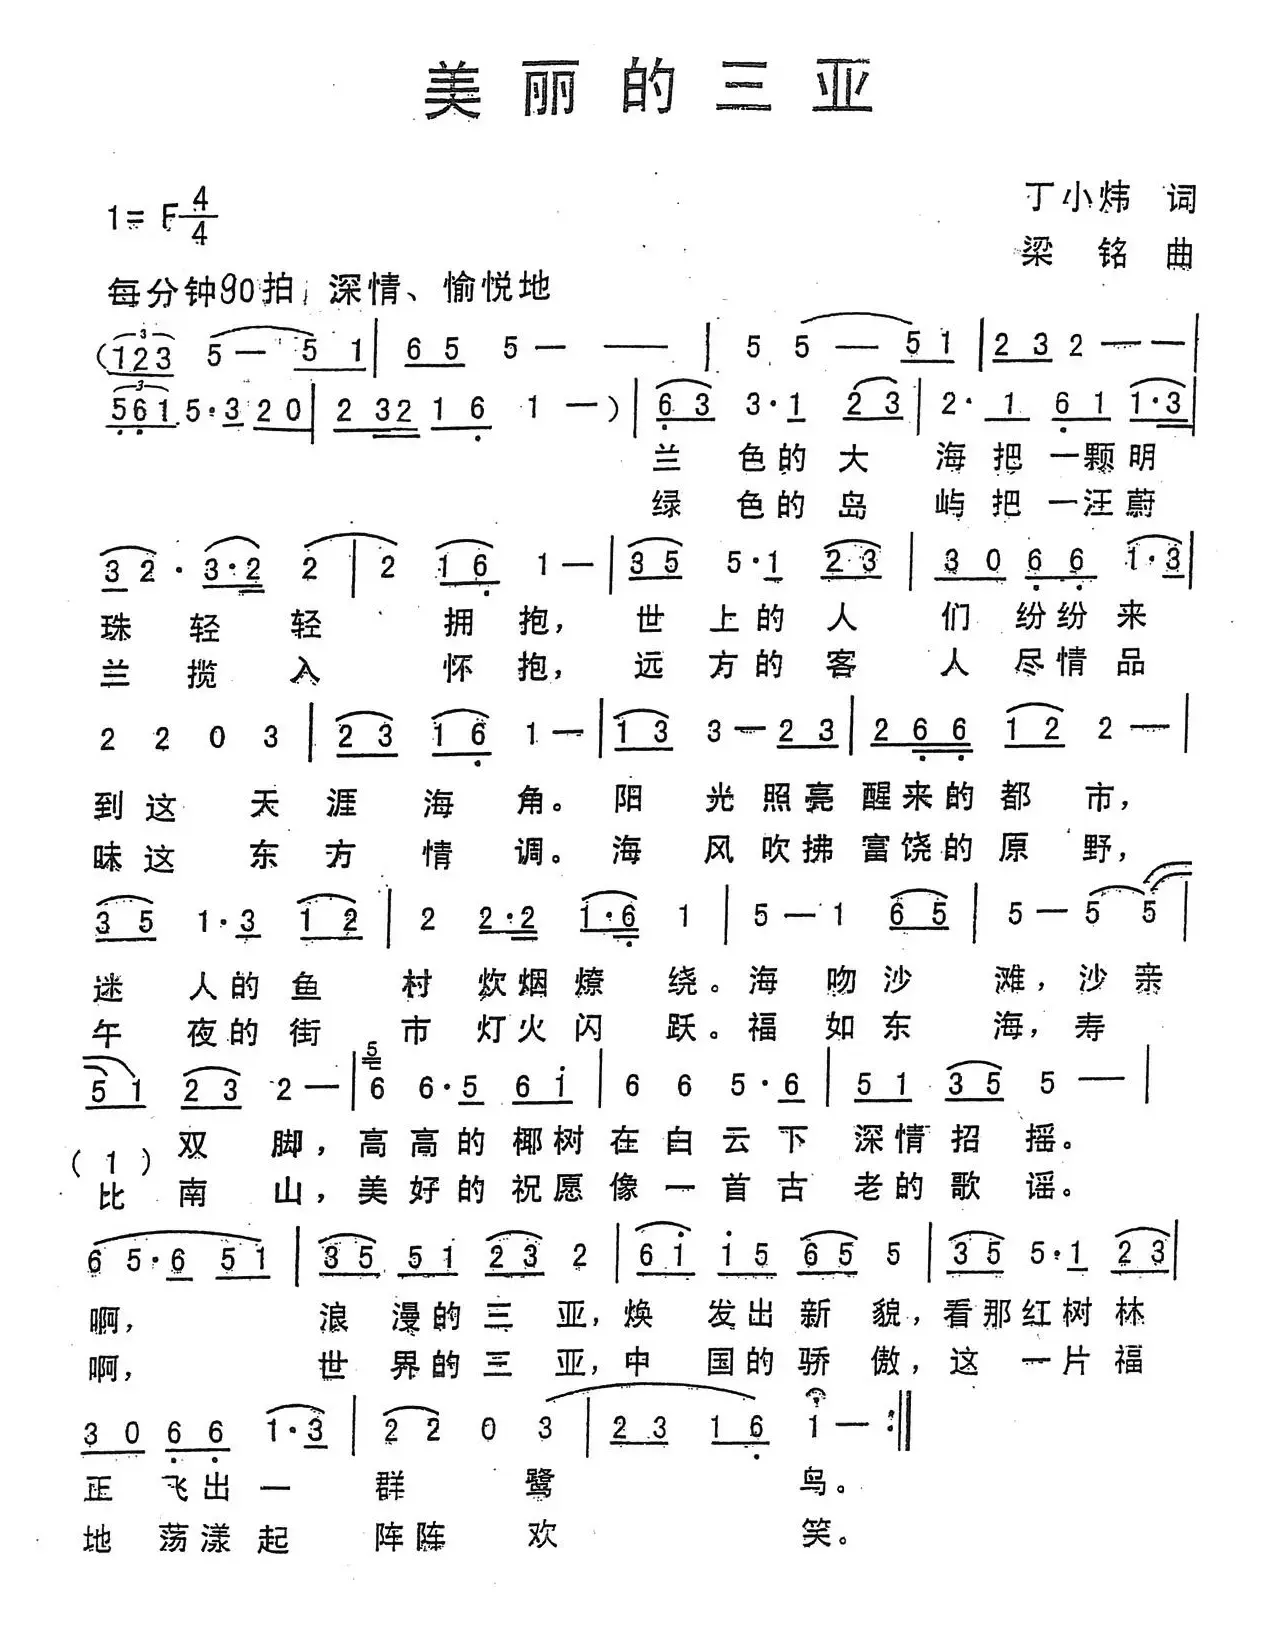 美丽的三亚
1= F 4/4
丁小炜 词
梁 铭 曲
每分钟90拍 深情、愉悦地
(123 5 — 5 1 | 6 5 5 — — — | 5 5 — 5 1 | 2 3 2 — — |
5 6 1 5· 3 2 0 | 2 3 2 1 6 1 — ) | 6 3 3· 1 2 3 | 2· 1 6 1 1· 3 |
兰 色的大 海把一颗明
绿 色的岛 屿把一汪蔚
3 2 · 3· 2 2 | 2 1 6 1 — | 3 5 5· 1 2 3 | 3 0 6 6 1· 3 |
珠 轻 轻 拥 抱, 世 上的人 们 纷纷来
兰 揽 入 怀 抱, 远 方的客 人 尽情品
2 2 0 3 | 2 3 1 6 1 — | 1 3 3 — 2 3 | 2 6 6 1 2 2 — |
到这 天 涯 海 角。 阳 光照亮醒来的都 市,
味这 东 方 情 调。 海 风吹拂富饶的原 野,
3 5 1· 3 1 2 | 2 2· 2 1· 6 1 | 5 — 1 6 5 | 5 — 5 5 |
迷 人的鱼 村 炊烟燎 绕。海 吻沙 滩,沙亲
午 夜的街 市 灯火闪 跃。福 如东 海,寿
5 1 2 3 2 — | 5 6 6· 5 6 i | 6 6 5· 6 | 5 1 3 5 5 — |
双 脚,高高的椰树在白云下 深情招 摇。
( 1 )
比 南 山,美好的祝愿像一首古 老的歌 谣。
6 5· 6 5 1 | 3 5 5 1 2 3 2 | 6 i i 5 6 5 5 | 3 5 5· 1 2 3 |
啊, 浪 漫的三 亚,焕 发出新 貌,看那红树林
啊, 世 界的三 亚,中 国的骄 傲,这 一片福
3 0 6 6 1· 3 | 2 2 0 3 | 2 3 1 6 1 — :||
正 飞出一 群 鹭 鸟。
地 荡漾起 阵阵 欢 笑。